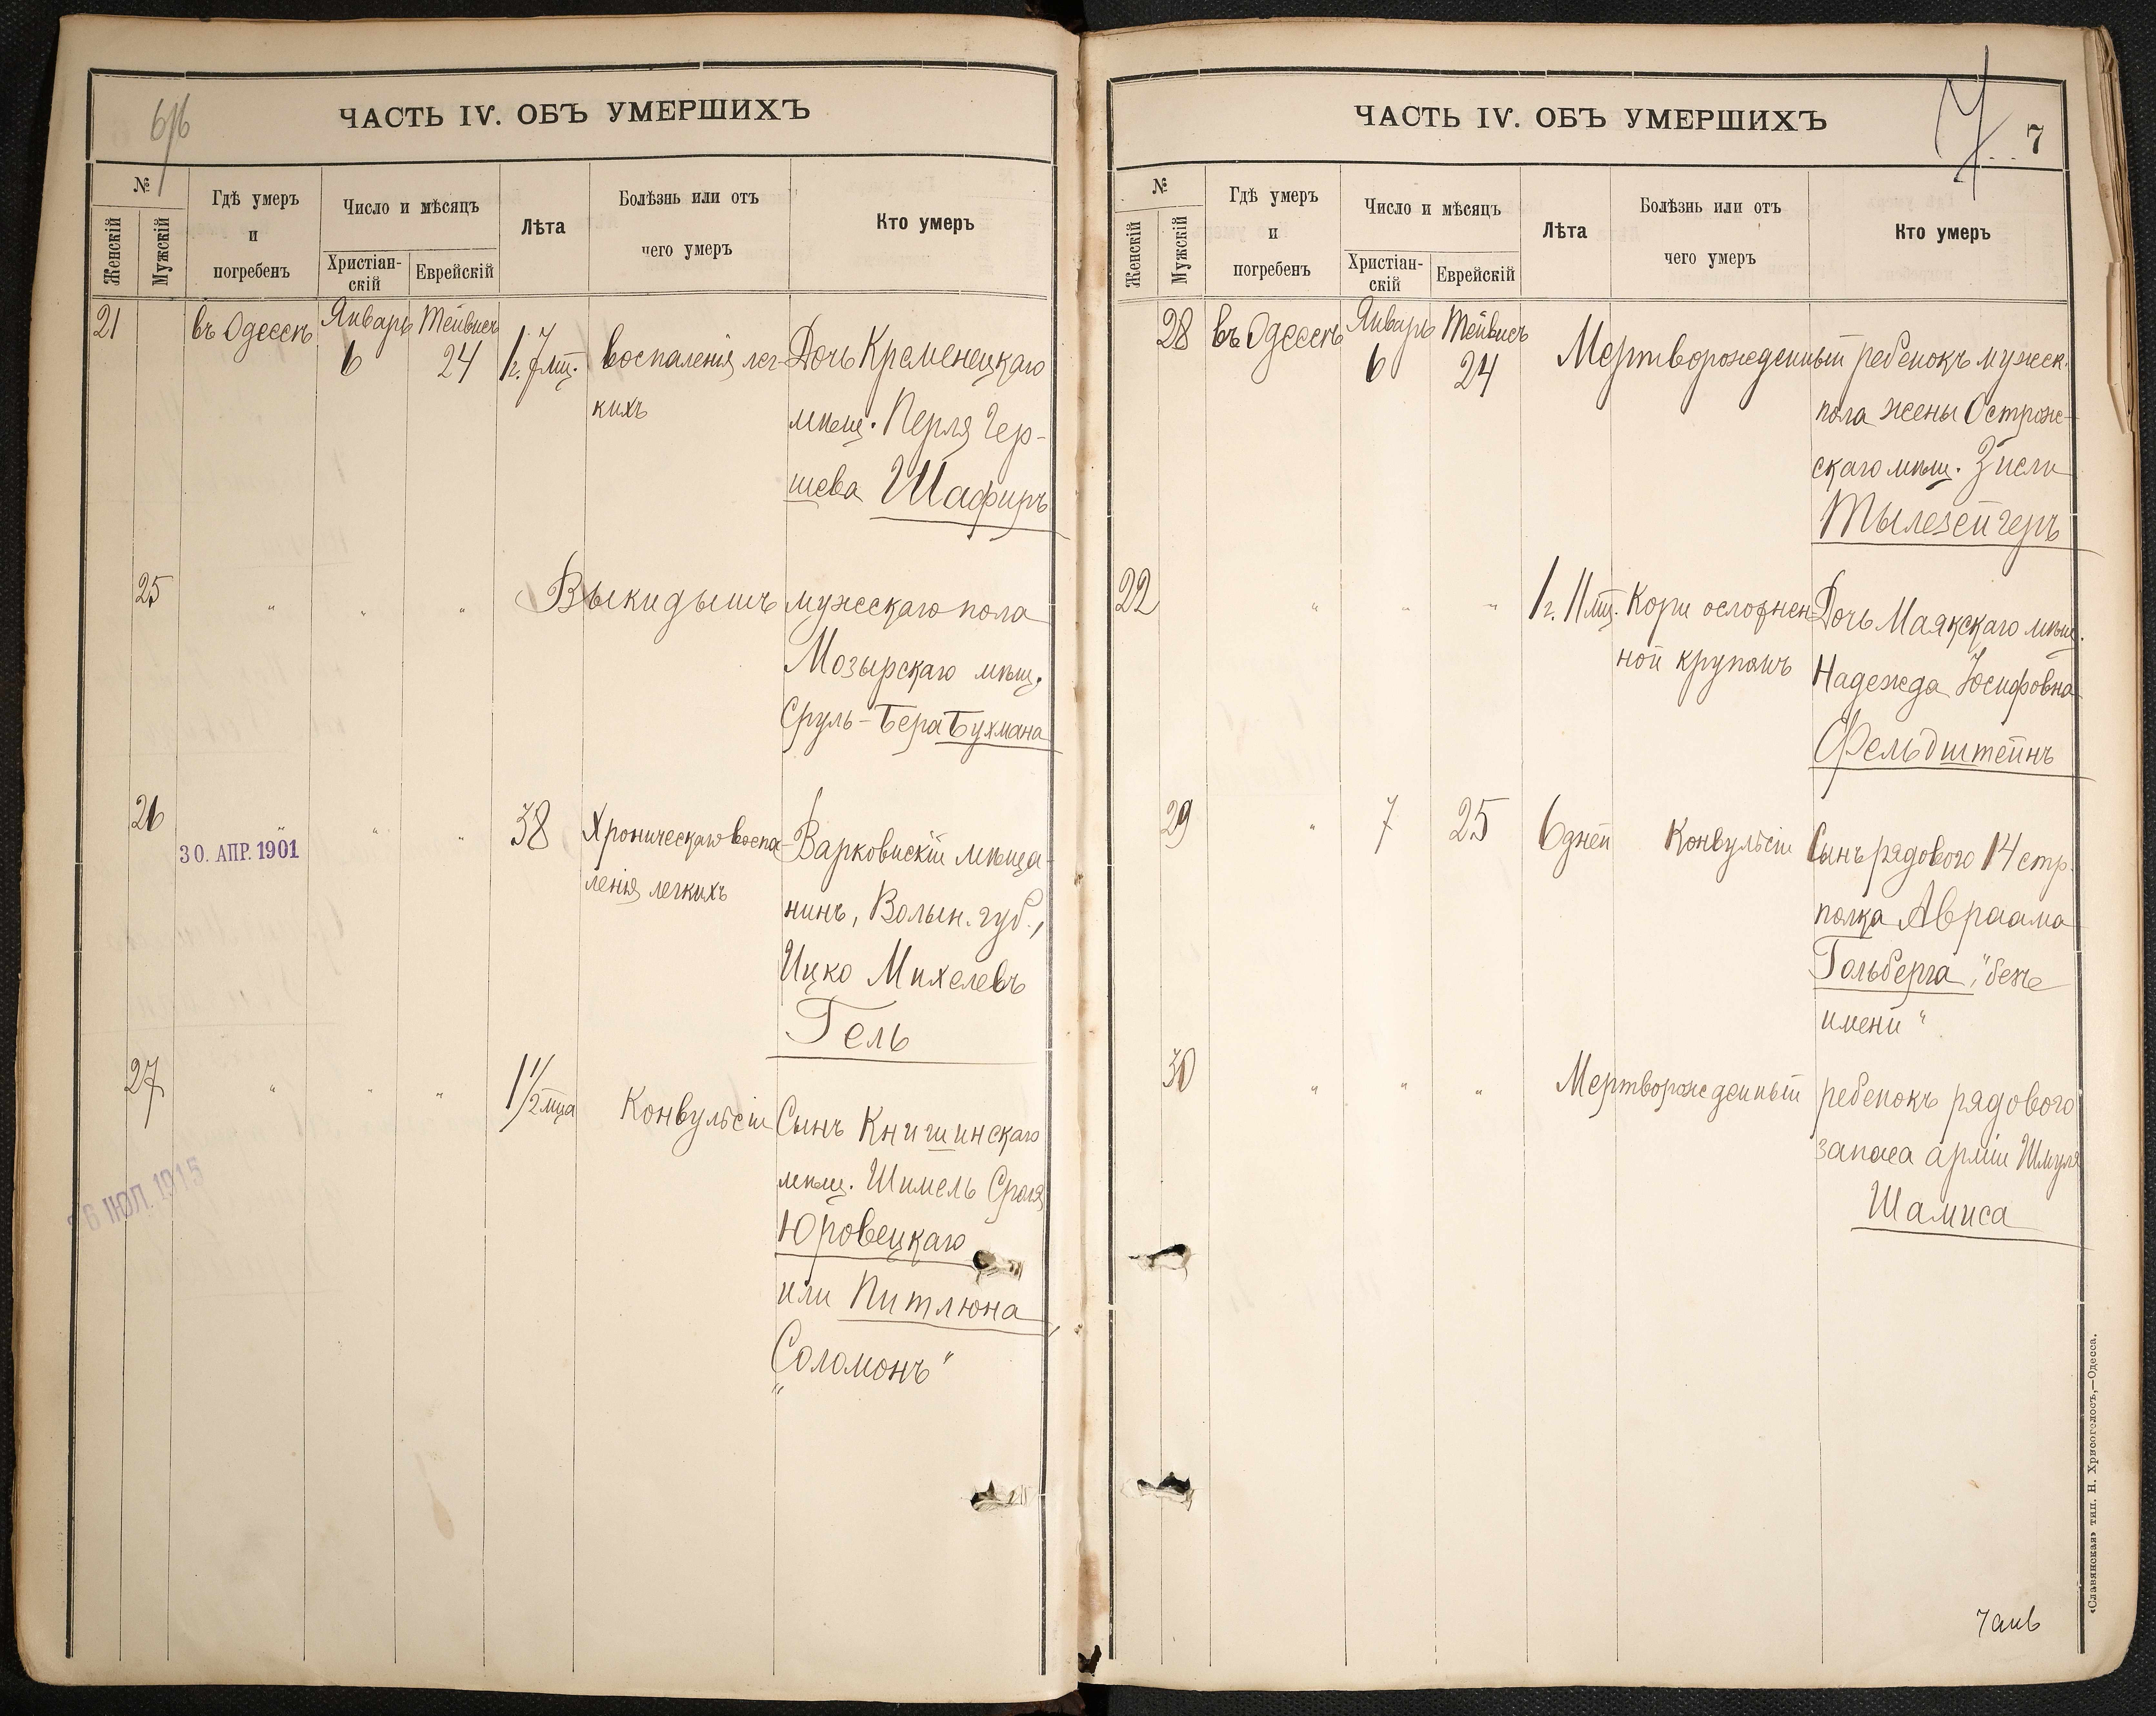 6/6
ЧАСТЬ IV. ОБЪ УМЕРШИХЪ
№
Женскій
Мужскій
Гдѣ умеръ
и
погребенъ
Число и мѣсяцъ
Христіан-
скій
Еврейскій
Лѣта
Болѣзнь или отъ
чего умеръ
Кто умеръ
21 въ Одессѣ Январь Тейвисъ
6 24 1 г. 7 мц. воспаленія лег- Дочь Кременецкаго
кихъ мѣщ. Перля Гер-
шева Шафиръ
25 " " " Выкидышъ мужескаго пола
Мозырскаго мѣщ.
Сруль-Бера Бухмана
26 " " " 38 Хроническаго воспа- Варковискій мѣща-
30. АПР. 1901
ленія легкихъ нинъ, Волын. губ.,
Ицко Михелевъ
Гель
27 " " " 1 1/2 мца Конвульсіи Сынъ Книшинскаго
мѣщ. Шимель Сроля
6 ІЮЛ. 1915
Юровецкаго
или Питлюна
„Соломонъ"
ЧАСТЬ IV. ОБЪ УМЕРШИХЪ
7
№
Женскій
Мужскій
Гдѣ умеръ
и
погребенъ
Число и мѣсяцъ
Христіан-
скій
Еврейскій
Лѣта
Болѣзнь или отъ
чего умеръ
Кто умеръ
28 въ Одессѣ Январь Тейвисъ
6 24 Мертворожденный ребенокъ мужеск.
пола жены Острож-
скаго мѣщ. Зисли
Тылезейгеръ
22 " " " 1 г. 11 мц. Кори ослржнен- Дочь Маякскаго мѣщ.
ной крупомъ Надежда Іосифовна
Фельдштейнъ
29 " 7 25 6 дней Конвульсіи Сынъ рядового 14 стр.
полка Авраама
Гольберга, "безъ
имени"
30 " " " Мертворожденный ребенокъ рядового
запаса арміи Шмуля
Шамиса
7 янв
«Славянская» тип. Н. Хрисогелосъ,—Одесса.